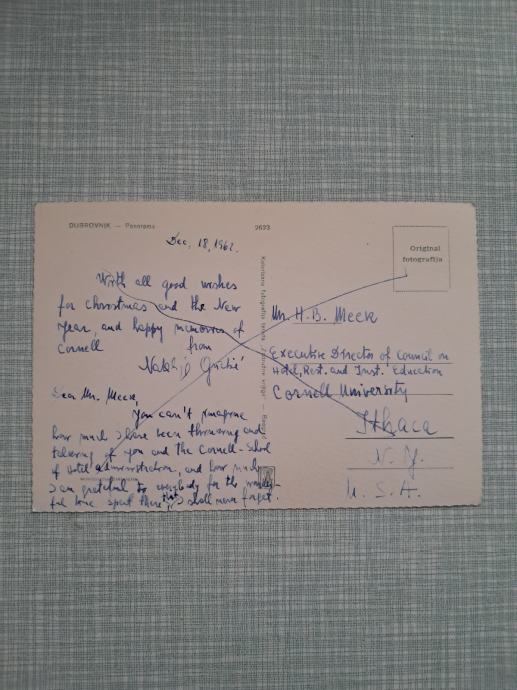 DUBROVNIK — Panorama
2623
Dec. 18, 1962.
With all good wishes
for christmas and the New
Year, and happy memories of
Cornell from
Dear Mr. Meek,
You can't imagine
how much I have been thinking and
talking of you and the Cornell-School
of Hotel administration, and how much
I am grateful to everybody for the wonder-
ful time spent there, that I shall never forget.
Original
fotografija
Mr. H.B. Meek
Executive Director of Council on
Hotel, Rest. and Inst. Education
Cornell University
Ithaca
N.Y.
U.S.A.